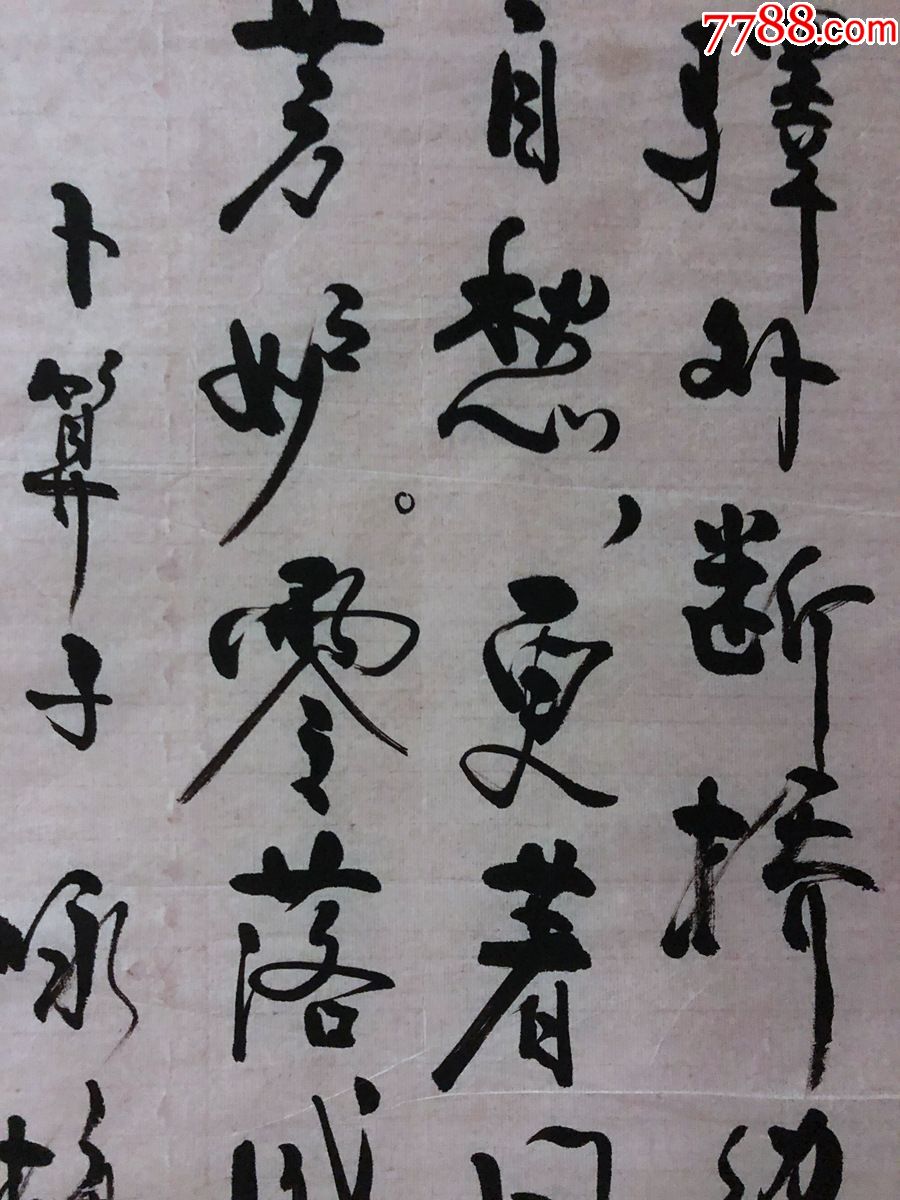 7788.com
驛外断桥边
自愁，更着风
芳妒。零落成
卜算子 咏梅